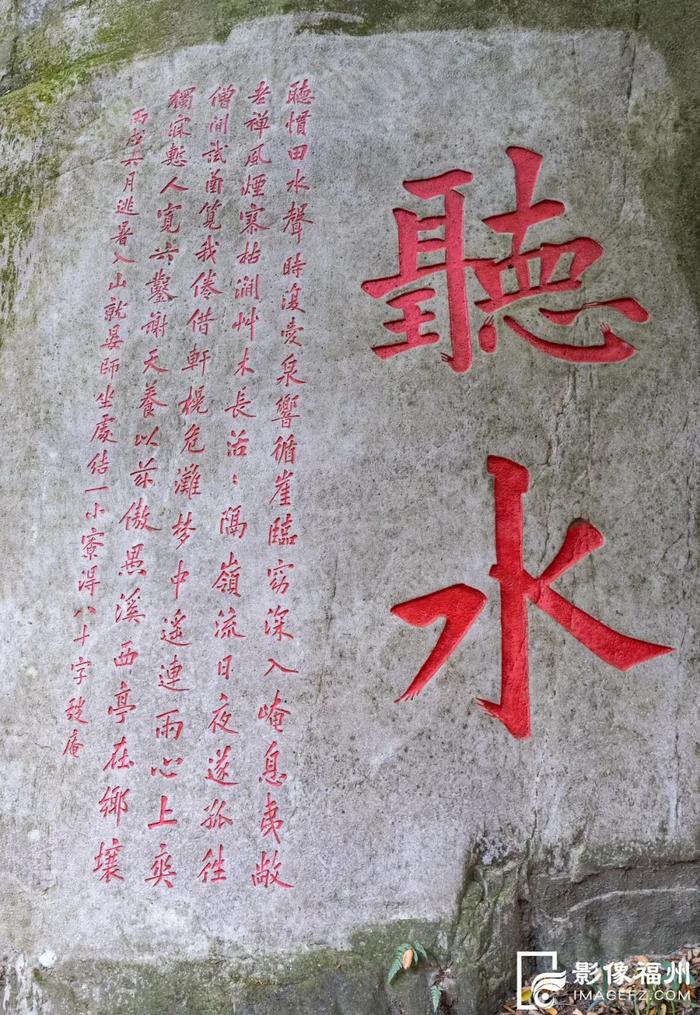 聽水
聽慣田水聲時復愛泉響循崖臨窈深入崦息夷敞
老禪風煙枯澗艸木長活〻隔嶺流日夜遂孤往
僧閒試酋筧我倦借軒榥危灘梦中遙連雨心上爽
獨寐慙人寬鑿謝天養以茲傲愚溪西亭在鄉壤
丙戌六月逃暑入山就晏師坐處結一小寮得八十字弢庵
影像福州
IMAGEFZ.COM